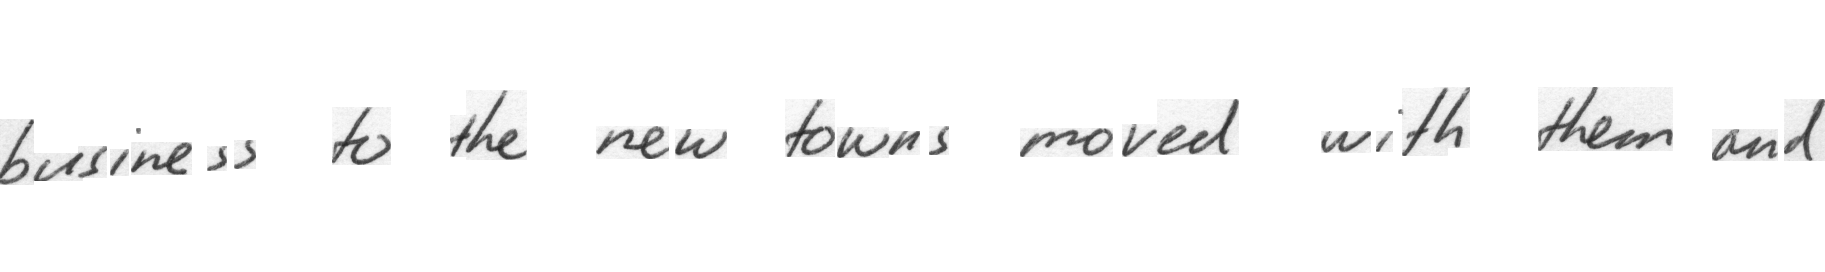 business to the new towns moved with them and